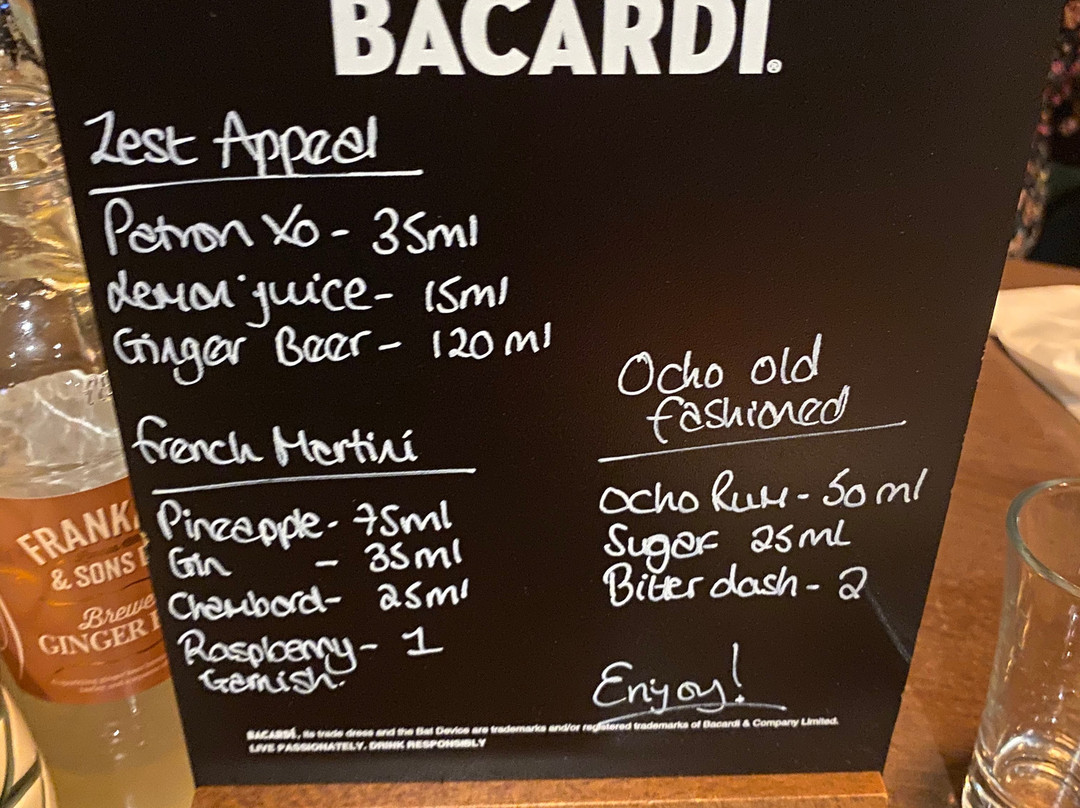 BACARDI®
Zest Appeal
Patron Xo - 35ml
Lemon juice - 15ml
Ginger Beer - 120 ml
French Martini
Pineapple - 75ml
Gin - 35ml
Chambord - 25ml
Raspberry - 1
Garnish.
Ocho old
fashioned
Ocho Rum - 50 ml
Sugar 25mL
Bitter dash - 2
Enjoy!
BACARDÍ, its trade dress and the Bat Device are trademarks and/or registered trademarks of Bacardi & Company Limited.
LIVE PASSIONATELY. DRINK RESPONSIBLY
& SONS
GINGER